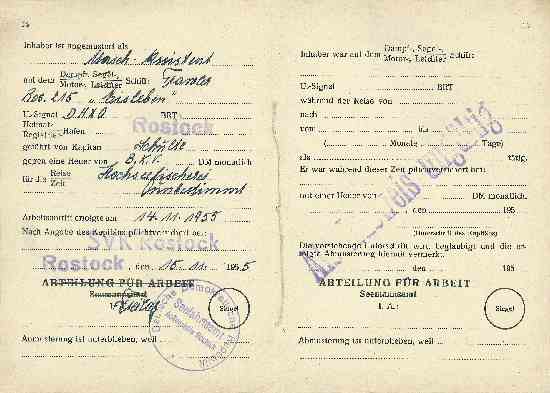 Inhaber ist angemustert als
Masch.-Assistent
auf dem Dampf-, Segel-,
Motor-, Leichter Schiff:
Ros. 215
U.-Signal DHXQ BRT
Heimat-
Register- Hafen Rostock
geführt von Kapitän Schulze
gegen eine Heuer von B.K.V. DM monatlich
für die Reise
Zeit Hochseefischerei
Unbestimmt
Arbeitsantritt erfolgte am 14.11.1955
Nach Angabe des Kapitäns pflichtversichert bei:
SVK Rostock
Rostock, den 15.11. 1955
ABTEILUNG FÜR ARBEIT
Seemannsamt
Siegel
Anmusterung ist unterblieben, weil
Inhaber war auf dem Dampf-, Segel-,
Motor-, Leichter Schiff:
U.-Signal BRT
während der Reise von
nach
vom bis
( Monate Tage)
als tätig.
Er war während dieser Zeit pflichtversichert bei:
mit einer Heuer von DM monatlich.
, den 195
(Unterschrift des Kapitäns)
Die vorstehende Unterschrift wird beglaubigt und die erfolgte Abmusterung hiermit vermerkt.
, den 195
ABTEILUNG FÜR ARBEIT
Seemannsamt
I. A.:
Siegel
Abmusterung ist unterblieben, weil